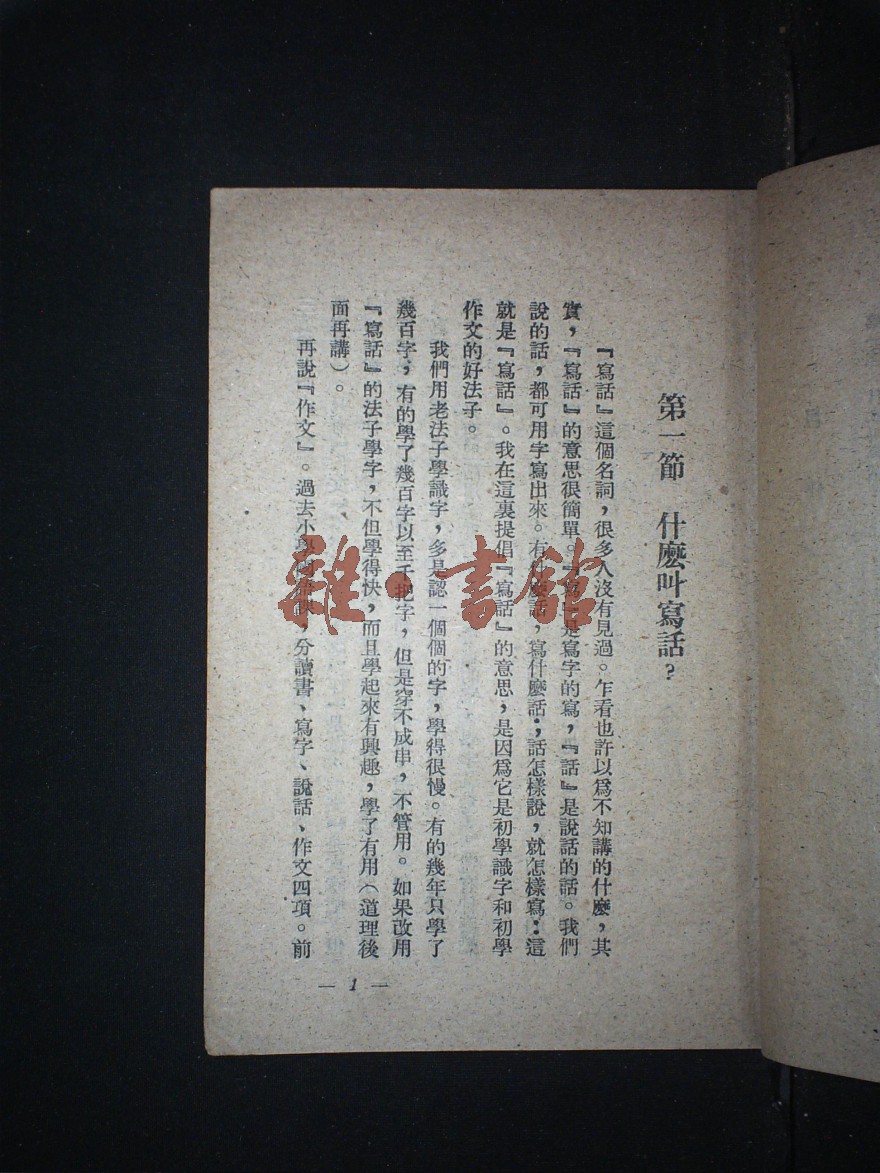 第一節　什麼叫寫話？
『寫話』這個名詞，很多人沒有見過。乍看也許以爲不知講的什麼，其
實，『寫話』的意思很簡單。『寫』是寫字的寫，『話』是說話的話。我們
說的話，都可用字寫出來。有什麼話，寫什麼話；話怎樣說，就怎樣寫：這
就是『寫話』。我在這裏提倡『寫話』的意思，是因爲它是初學識字和初學
作文的好法子。
我們用老法子學識字，多是認一個個的字，學得很慢。有的幾年只學了
幾百字，有的學了幾百字以至千把字，但是穿不成串，不管用。如果改用
『寫話』的法子學字，不但學得快，而且學起來有興趣，學了有用（道理後
面再講）。
再說『作文』。過去小學，分讀書、寫字、說話、作文四項。前
— 1 —
雜·書館